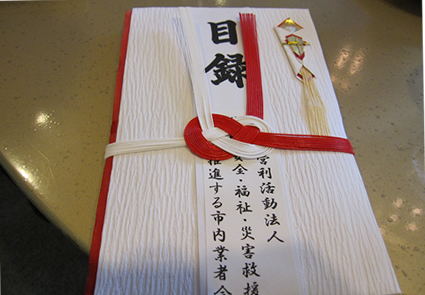 目録
営利活動法人
安全・福祉・災害救援
推進する市内業者会